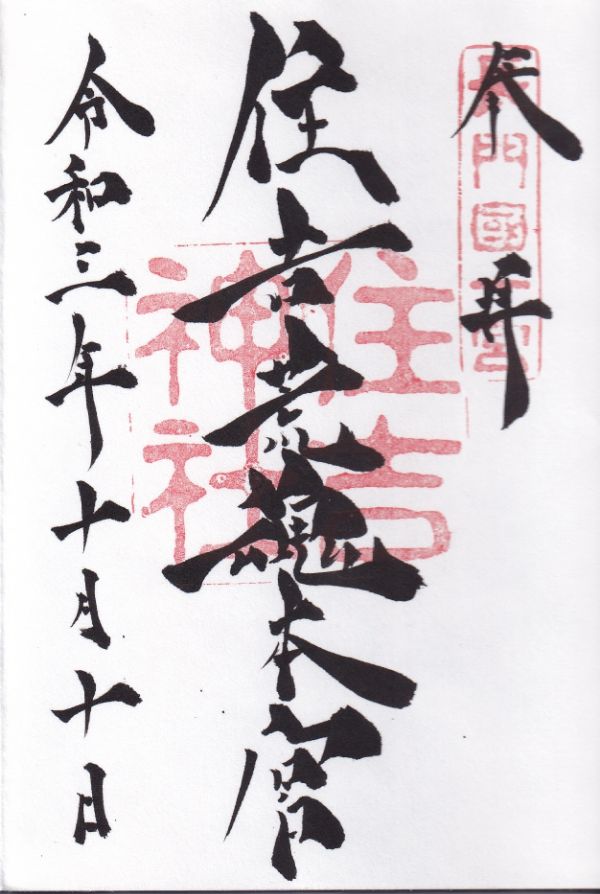 奉拝
長門國一宮
住吉荒魂本宮
住吉神社
令和三年十月十日